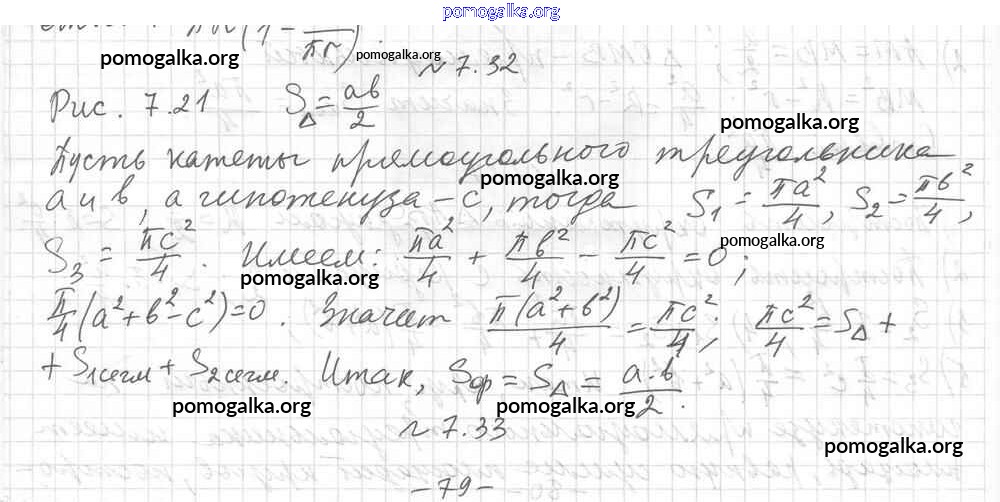 pomogalka.org
πr(1 - πr)
pomogalka.org pomogalka.org
№ 7.32
Рис. 7.21 S△ = ab/2
pomogalka.org
Пусть катеты прямоугольного треугольника
pomogalka.org
a и b, а гипотенуза - c, тогда S₁ = πa²/4, S₂ = πb²/4,
pomogalka.org
S₃ = πc²/4. Имеем: πa²/4 + πb²/4 - πc²/4 = 0;
pomogalka.org
π/4(a² + b² - c²) = 0. Значит π(a² + b²)/4 = πc²/4; πc²/4 = S△ +
+ S₁сегм + S₂сегм. Итак, Sфр = S△ = a·b/2.
pomogalka.org pomogalka.org
№ 7.33
pomogalka.org
- 79 -